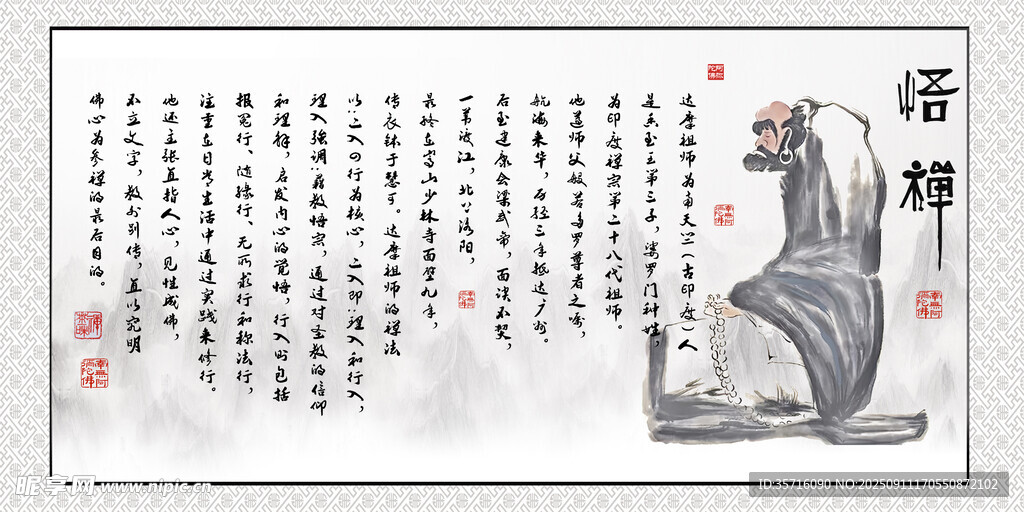 悟禅
达摩祖师为南天竺(古印度)人
是香至王第三子，婆罗门种姓，
为印度禅宗第二十八代祖师。
他遵师父般若多罗尊者之嘱，
航海来华，历经三年抵达广州。
后至建康会梁武帝，面谈不契，
一苇渡江，北上洛阳，
最终在嵩山少林寺面壁九年，
传衣钵于慧可。达摩祖师的禅法
以二入四行为核心，二入即:理入和行入，
理入强调:藉教悟宗，通过对圣教的信仰
和理解，启发内心的觉悟，行入则包括
报冤行、随缘行、无所求行和称法行，
注重在日常生活中通过实践来修行。
他还主张直指人心，见性成佛，
不立文字，教外别传，直以究明
佛心为参禅的最后目的。
南无阿弥陀佛
南无阿弥陀佛
南无阿弥陀佛
南无阿弥陀佛
昵享网 www.nipic.cn
ID:35716090 NO:20250911170550872102